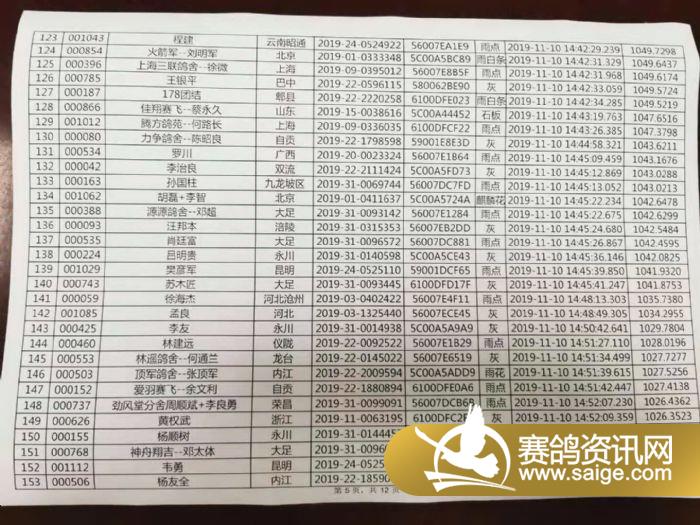 123 001043 程建 云南昭通 2019-24-0524922 56007EA1E9 雨点 2019-11-10 14:42:29.239 1049.7298
124 000854 火箭军--刘明军 北京 2019-01-0333348 5C00A5BC89 雨白条 2019-11-10 14:42:31.329 1049.6437
125 000396 上海三联鸽舍--徐微 上海 2019-09-0395012 56007E8B5F 雨点 2019-11-10 14:42:31.968 1049.6174
126 000785 王银平 巴中 2019-22-0596115 580062BE90 灰 2019-11-10 14:42:33.059 1049.5724
127 000187 178团结 郫县 2019-22-2220258 6100DFE023 雨白条 2019-11-10 14:42:34.285 1049.5219
128 000866 佳翔赛飞--蔡永久 山东 2019-15-0038616 5C00A44452 石板 2019-11-10 14:43:19.763 1047.6516
129 001012 腾方鸽苑--何路长 上海 2019-09-0336035 6100DFCF22 雨点 2019-11-10 14:43:26.385 1047.3798
130 000080 力争鸽舍--陈昭良 自贡 2019-22-1798598 59001E8E3D 灰 2019-11-10 14:44:58.321 1043.6211
131 000534 罗川 广西 2019-20-0023324 56007E1B64 雨点 2019-11-10 14:45:09.459 1043.1676
132 000042 李治良 双流 2019-22-2111424 5C00A5FD73 灰 2019-11-10 14:45:12.639 1043.0288
133 000163 孙国柱 九龙坡区 2019-31-0069744 56007DC7FD 雨点 2019-11-10 14:45:13.052 1043.0213
134 001062 胡磊+李智 北京 2019-01-0441637 5C00A5724A 麒麟花 2019-11-10 14:45:22.234 1042.6478
135 000388 源源鸽舍--邓超 大足 2019-31-0093142 56007E1284 雨点 2019-11-10 14:45:22.675 1042.6299
136 000093 汪邦本 涪陵 2019-31-0315353 56007EB2DD 灰 2019-11-10 14:45:24.680 1042.5484
137 000535 肖廷富 大足 2019-31-0096572 56007DC881 雨点 2019-11-10 14:45:26.867 1042.4595
138 000224 吕明贵 永川 2019-31-0140598 5C00A5CE43 灰 2019-11-10 14:45:36.146 1042.0825
139 001029 樊彦军 昆明 2019-24-0525110 59001DCF65 雨点 2019-11-10 14:45:39.850 1041.9320
140 000743 苏木匠 大足 2019-31-0093445 6100DFD17E 灰 2019-11-10 14:45:41.247 1041.8753
141 000059 徐海杰 河北沧州 2019-03-0402422 56007E4F11 雨点 2019-11-10 14:48:13.303 1035.7380
142 001085 孟良 河北 2019-03-1325440 56007ECE45 灰 2019-11-10 14:48:49.305 1034.2955
143 000425 李友 永川 2019-31-0014938 5C00A5A9A9 灰 2019-11-10 14:50:42.641 1029.7804
144 000460 林建远 仪陇 2019-22-0092527 56007E1B29 雨点 2019-11-10 14:51:27.110 1028.0196
145 000553 林遥鸽舍--何通兰 龙台 2019-22-0145022 56007E6519 灰 2019-11-10 14:51:34.499 1027.7277
146 000503 顶军鸽舍--张顶军 内江 2019-22-2009594 5C00A5ADD9 雨花 2019-11-10 14:51:36.521 1027.6479
147 000152 爱羽赛飞--余文利 自贡 2019-22-1880894 6100DFE0A6 雨点 2019-11-10 14:51:42.447 1027.4138
148 000737 劲风堂分舍周顺斌+李良勇 荣昌 2019-31-0099091 56007DCB6B 雨点 2019-11-10 14:52:07.230 1026.4362
149 000626 黄权武 浙江 2019-11-0063195 6100DFC26 灰 2019-11-10 14:52:09.359 1026.3523
150 000155 杨顺树 永川 2019-31-014445
151 000768 神舟翔吉--邓大体 大足 2019-31-0096
152 001112 韦勇 昆明 2019-24-0525
153 000506 杨友全 内江 2019-22-1859
第 5 页，共 12 页
赛鸽资讯网
www.saige.com